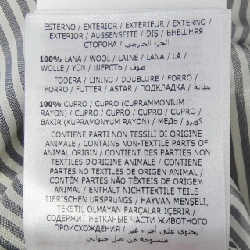 ESTERNO / EXTERIOR / EXTERIEUR / EXTERNO /
EXTERIOR / AUSSENSEITE / DIŞ / ВНЕШНЯЯ
СТОРОНА / الجزء الخارجي
100% LANA / WOOL / LAINE / LANA / LÃ /
WOLLE / YÜN / ШЕРСТЬ / صوف
FODERA / LINING / DOUBLURE / FORRO /
FORRO / FUTTER / ASTAR / ПОДКЛАДКА /
100% CUPRO / CUPRO (CUPRAMMONIUM
RAYON) / CUPRO / CUPRO / CUPRO / CUPRO /
BAKIR (KUPRAMONYUM RAYON) /
CONTIENE PARTI NON TESSILI DI ORIGINE
ANIMALE / CONTAINS NON-TEXTILE PARTS OF
ANIMAL ORIGIN / CONTIENT DES PARTIES NON
TEXTILES D'ORIGINE ANIMALE / CONTIENE
PARTES NO TEXTILES DE ORIGEN ANIMAL /
CONTÉM PARTES NÃO TÊXTEIS DE ORIGEM
ANIMAL / ENTHÄLT NICHTTEXTILE TEILE
TIERISCHEN URSPRUNGS / HAYVAN MENŞELİ,
TEKSTİL OLMAYAN PARÇALAR İÇERİR /
СОДЕРЖИТ НЕТКАНЫЕ ЧАСТИ ЖИВОТНОГО
ПРОИСХОЖДЕНИЯ /
منسوجة من أصل حيواني